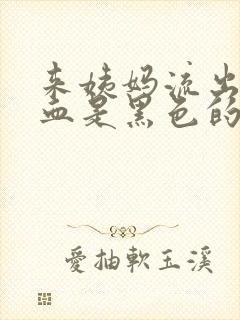 来姨妈流出
血是黑色的
愛抽軟玉溪